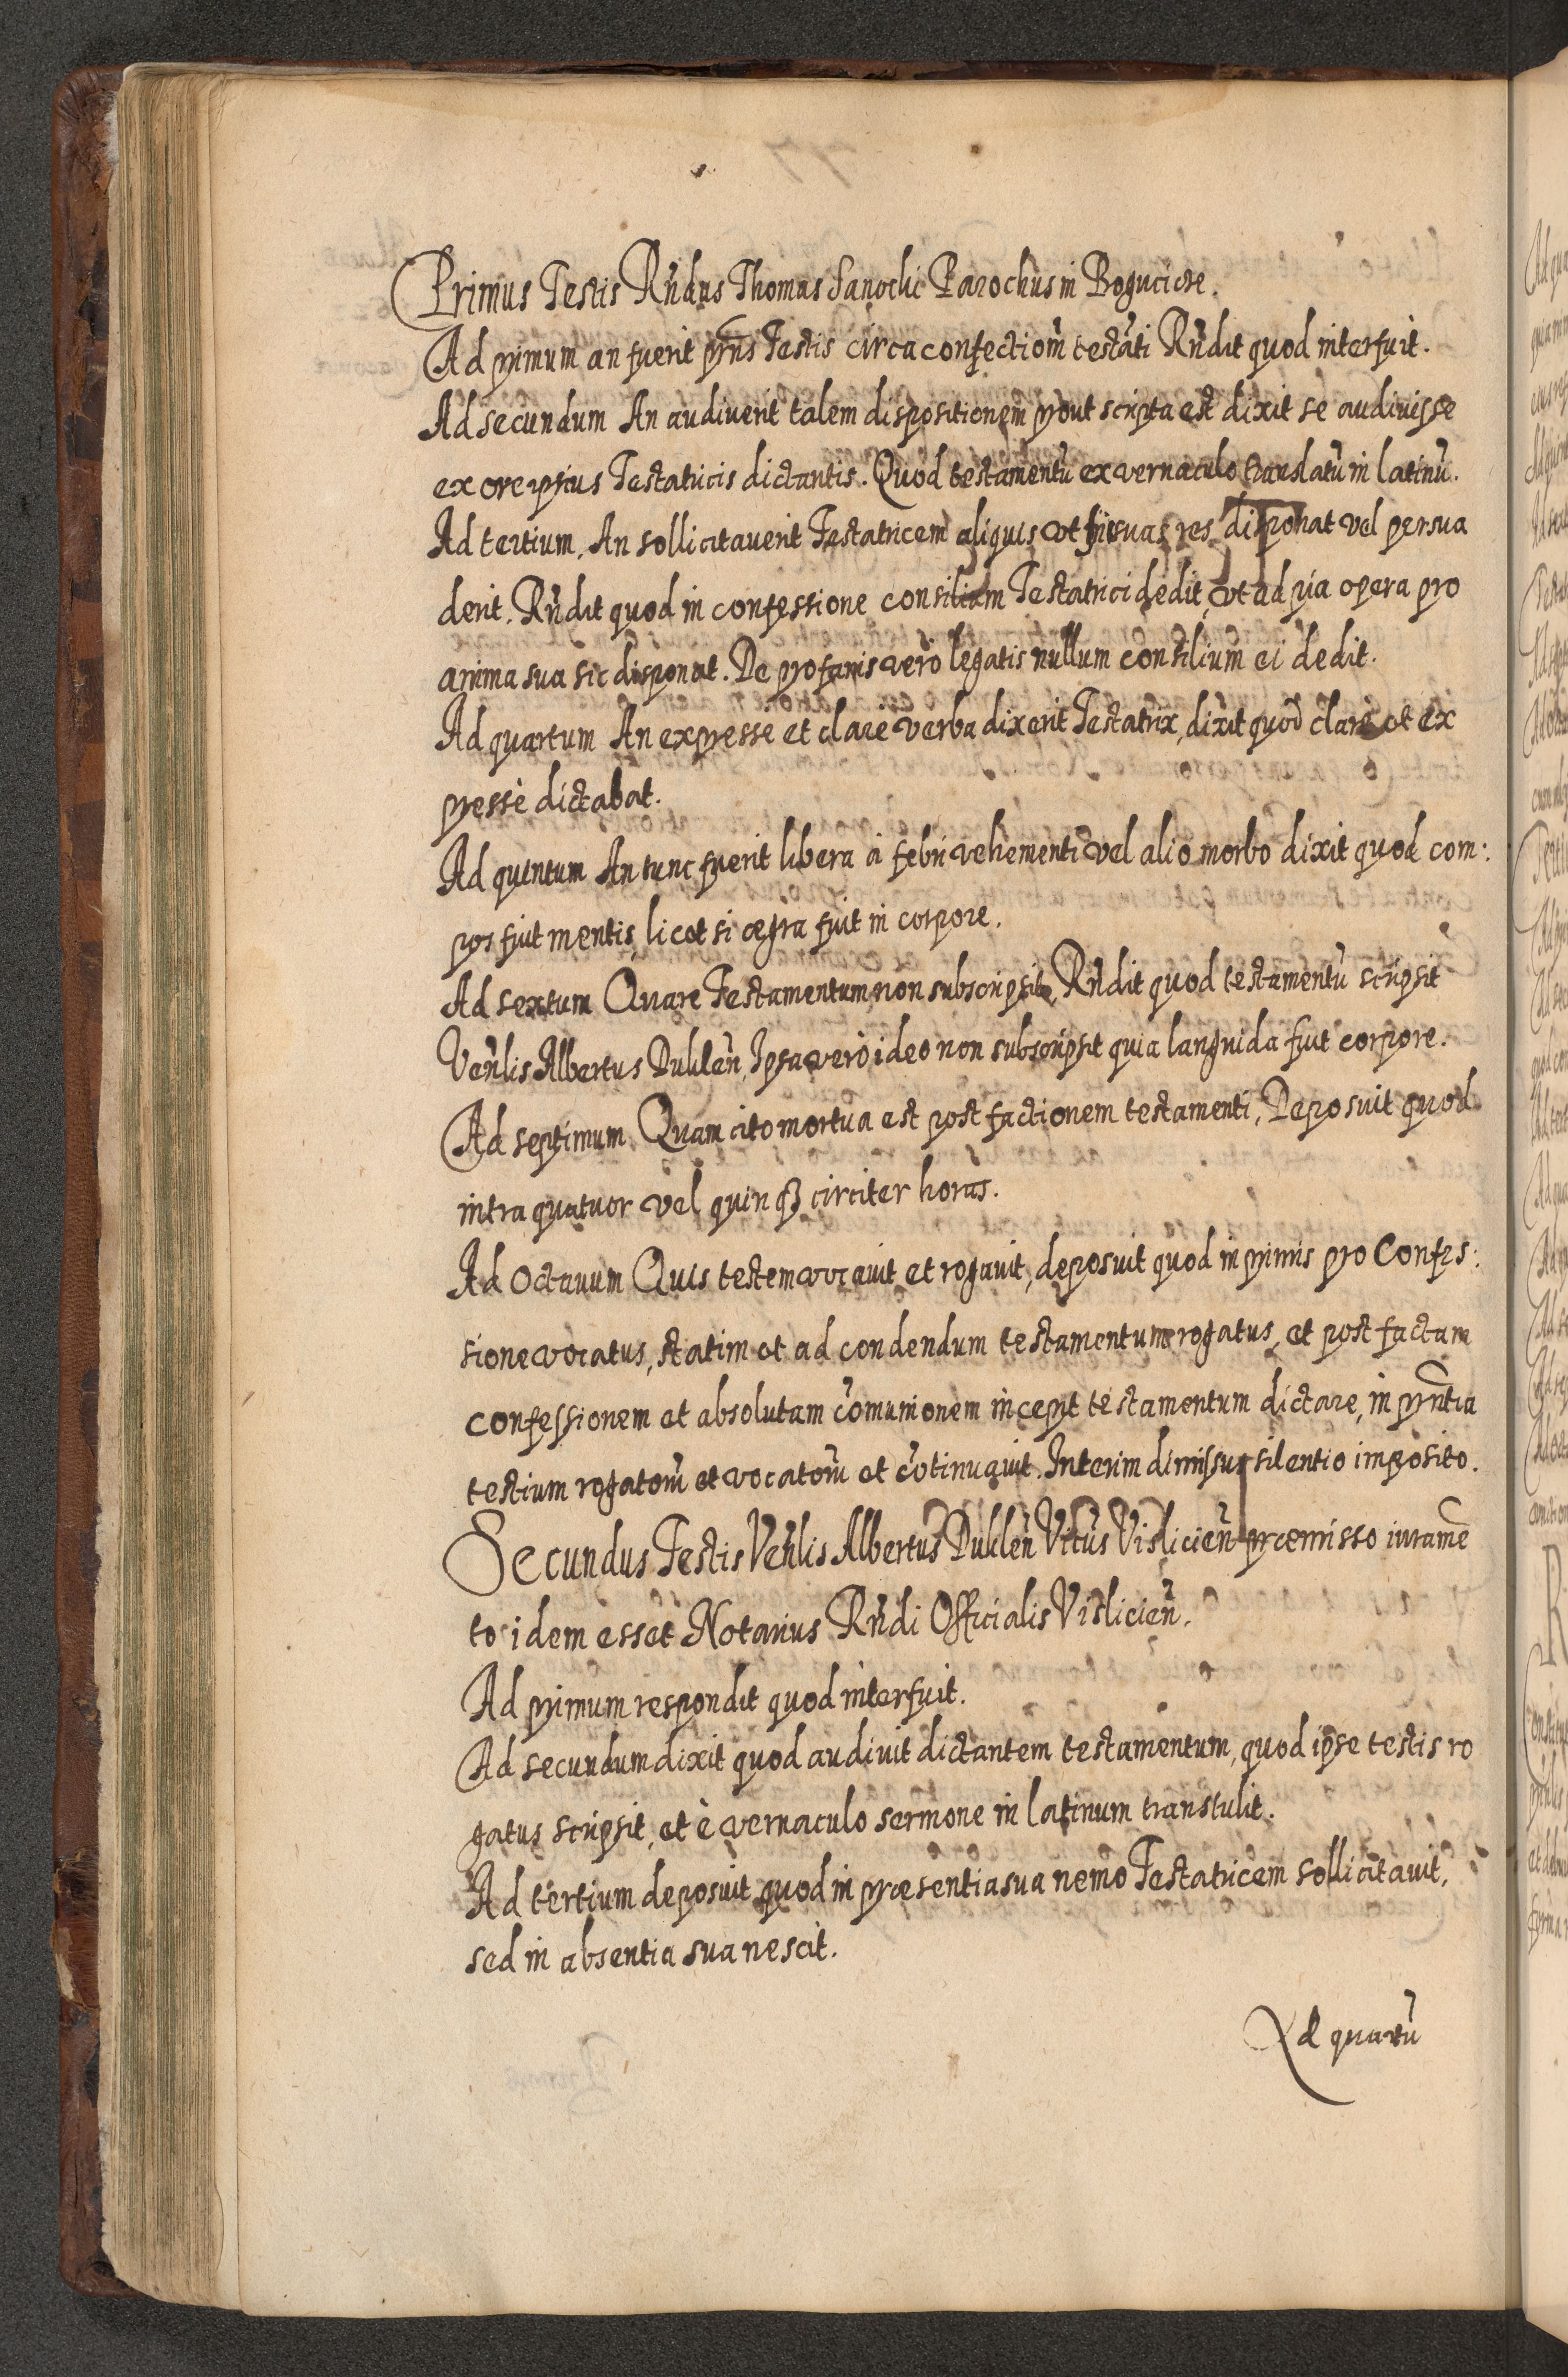 Primus Testis Rñdus Thomas Sanocki Parochus in Bogucice.
Ad primum an fuerit pñs Testis circa confectioñ testãti Rñdit quod interfuit.
Ad secundum An audiverit talem dispositionem prout scripta est dixit se audivisse
ex ore ipsius Testatricis dictantis. Quod testamentũ ex vernaculo translatũ in latinũ.
Ad tertium, An sollicitaverit Testatricem aliquis vt sic suas res disponat vel persua
derit. Rñdit quod in confessione consilium Testatrici dedit, vt ad pia opera pro
anima sua sic disponat. De profanis vero legatis nullum consilium ei dedit.
Ad quartum An expresse et clarè verba dixerit Testatrix, dixit quod clarè et ex
pressè dictabat.
Ad quintum An tunc fuerit libera à febri vehementi vel alio morbo dixit quod com:
pos fuit mentis, licet si ægra fuit in corpore.
Ad sextum Quare Testamentum non subscripsit, Rñdit quod testamentũ scripsit
Veñlis Albertus Dukleñ, Ipsa verò ideo non subscripsit quia languida fuit corpore.
Ad septimum Quam cito mortua est post factionem testamenti, Deposuit quod
intra quatuor vel quinqꝫ circiter horas.
Ad Octauum Quis testem vocauit et rogauit, deposuit quod in primis pro Confes:
sione vocatus, statim et ad condendum testamentum rogatus, et post factam
confessionem et absolutam cõmunionem incepit testamentum dictare, in pñtia
testium rogatorũ et vocatorũ et cõtinuauit. Interim dimissus silentio imposito.
Secundus Testis Veñlis Albertus Dukleñ Vitus Visliciẽn præmisso iuramẽ
to idem esset Notarius Rñdi Officialis Visliceñ.
Ad primum respondit quod interfuit.
Ad secundum dixit quod audiuit dictantem testamentum, quod ipse testis ro
gatus scripsit, et è vernaculo sermone in latinum transtulit.
Ad tertium deposuit quod in præsentia sua nemo Testatricem sollicitauit,
sed in absentia sua nescit.
Ad quartũ